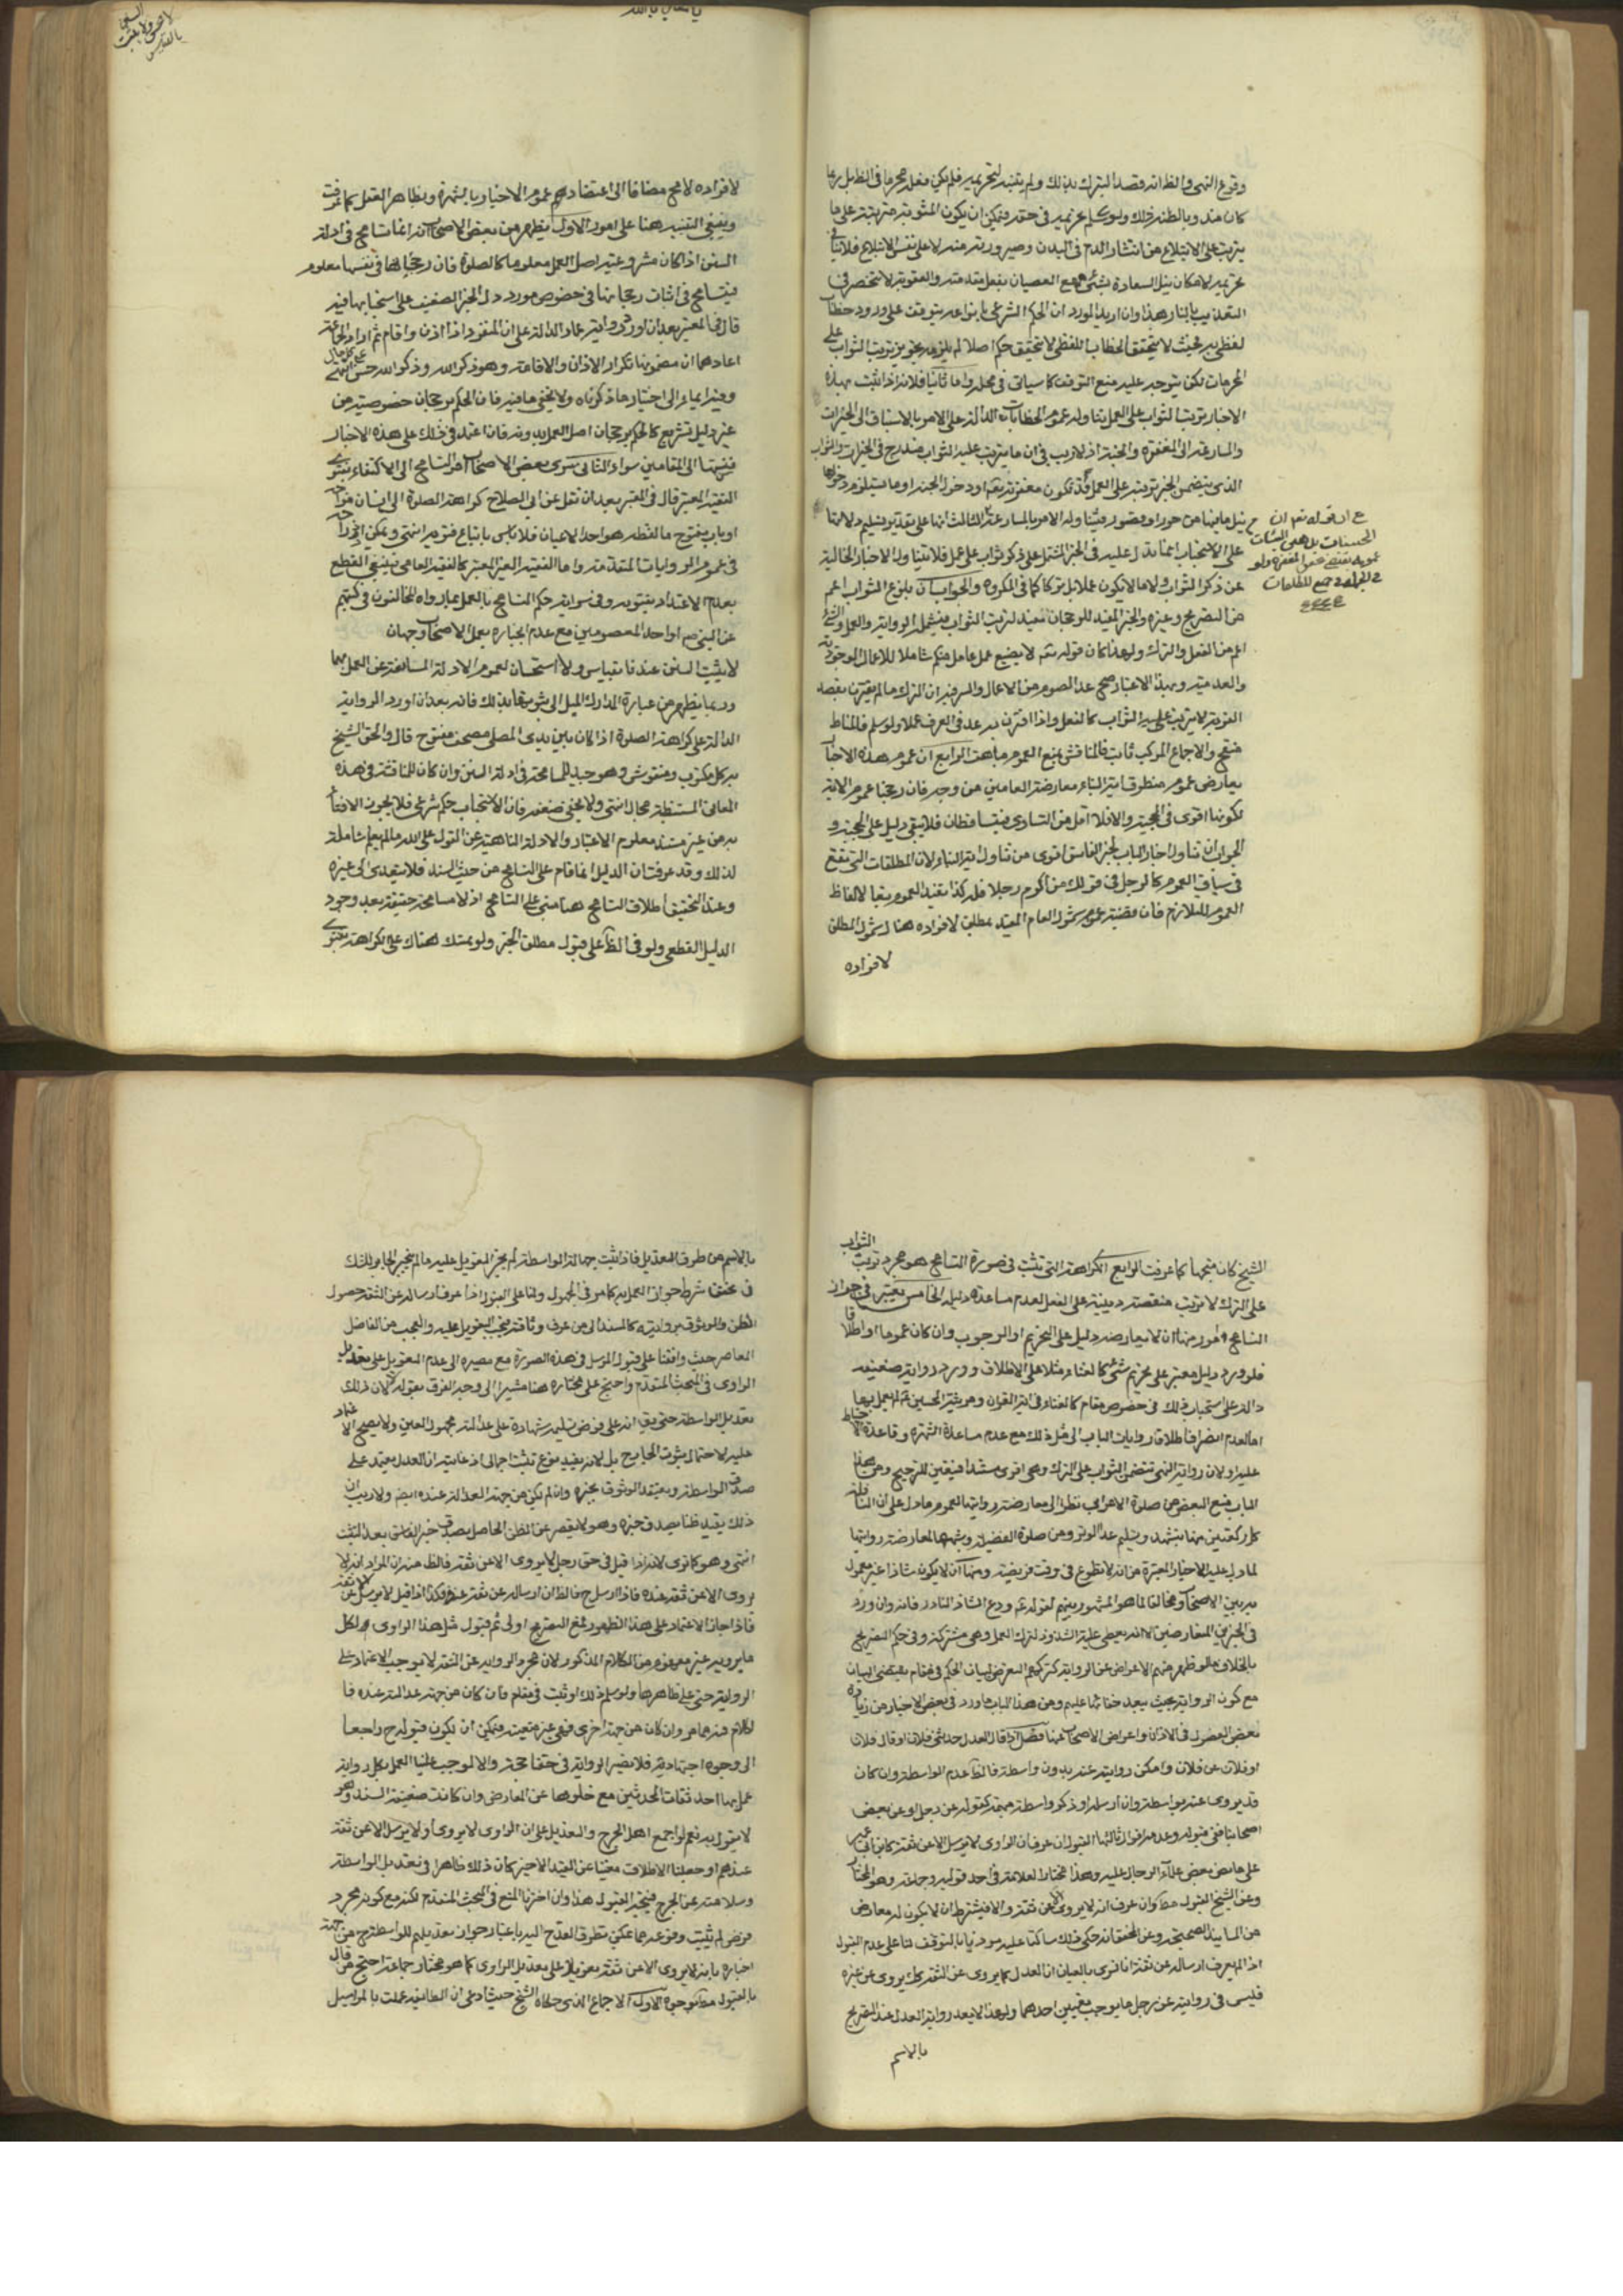 وقوع النهى والظ انه قصد التبرك بذلك ولم يتنبه لتحريمه فلم يكن فعله محرما فى الظ بل ربما
كان مندوبا لظنه ذلك ولو سلم تحريمه فى حقه فيمكن ان يكون المثوبة مترتبة على ما
يترتب على الابتلاع من انتشار الدم فى البدن وصيرورته منه لا على نفس الابتلاع فلا ينافى
تحريمه لامكان نيل السعادة بشئ مع العصيان بفعل مقدمته والعقوبة لا تنحصر فى
التعذيب بالنار هذا وان اريد بالمورد ان الحكم الشرعى بانواعه يتوقف على ورود خطاب
لفظى به بحيث لا يتحقق الخطاب اللفظى لا يتحقق حكم اصلا لم يلزمه تجويز ترتب الثواب على
المحرمات لكن يتوجه عليه منع التوقف كما سياتى فى محله واما ثانيا فلانه اذا ثبت بهذه
الاخبار ترتب الثواب على العمل يتناوله عموم الخطابات الدالة على الامر بالاستباق الى الخيرات
والمسارعة الى المغفرة والجنة اذ لا ريب فى ان ما يترتب عليه الثواب مندرج فى الخيرات والثواب
الذى يتضمن الخبر ترتبه على العمل قد يكون مغفرته تعم او دخول الجنة او ما يستلزم دخولها
نيل ما فيها من حور او قصور فيتناوله الامر بالمسارعة الثالث انها على تقدير تسليم دلالتها
على الاستحباب انما تدل عليه فى الخبر المشتمل على ذكر ثواب على عمل فلا يتناول الاخبار الخالية
عن ذكر الثواب ولا ما لا يكون عملا بل تركا كما فى المكروه والجواب ان بلوغ الثواب اعم
من التصريح وغيره والخبر المفيد للرجحان مفيد لترتب الثواب فيشمله الرواية والعمل والشئ
اعم من الفعل والترك ولهذا كان قوله تعم لا يضيع عمل عامل منكم شاملا للاعمال الوجودية
والعدمية وبهذا الاعتبار صح عد الصوم من الاعمال والسر فيه ان الترك ما لم يقترن بقصد
القربة لا يترتب عليه الثواب كالفعل واذا اقترن به عد فى العرف عملا ولو سلم فالمناط
منقح والاجماع المركب ثابت فالمناقشة بمنع العموم مباهتة الرابع ان عموم هذه الاخبار
يعارض عموم منطوق اية النباء معارضة العامين من وجه فان رجحنا عموم الاية
لكونها اقوى فى الحجية والا فلا اقل من التساوى فيتساقطان فلا يبقى دليل على الحجية و
الجواب ان تناول اخبار الباب لخبر الفاسق اقوى من تناول اية النباء لان المطلقات التى تقع
فى سياق العموم كالرجل فى قولك من اكرم رجلا فله كذا تفيد العموم تبعا لالفاظ
العموم للتلازم فان قضية عموم شمول العام المقيد بمطلق لافراده هنا شمول المطلق
لافراده
الحسنات يذهبن السيئات
لافراده لا مح مضافا الى اعتضادهم عموم الاخبار بالشهرة وبظاهر العقل كما عرفت
وينبغى التنبيه هنا على امور الاول يظهر من بعض الاصحاب انه انما يتسامح فى ادلة
السنن اذا كان مشروعية اصل العمل معلوما كالصلوة فان رجحانها فى نفسها معلوم
فيتسامح فى اثبات رجحانها فى خصوص مورد دل الخبر الضعيف على استحبابها فيه
قال فى المعتبر بعد ان اورد رواية عمار الدالة على ان المنفرد اذا اذن واقام ثم اراد الجماعة
اعادهما ان مضمونها تكرار الاذان والاقامة وهو ذكر الله وذكر الله حسن على كل حال انتهى
وفيه ايماء الى اختيار ما ذكرناه ولا يخفى ما فيه فان الحكم برجحان خصوصية من
غير دليل تشريع كالحكم برجحان اصل العمل بدونه فان اعتمد فى ذلك على هذه الاخبار
فنسبتها الى المقامين سواء الثانى سرى بعض الاصحاب امر التسامح الى الاكتفاء بفتوى
الفقيه المعتبر قال فى المعتبر بعد ان نقل عن ابى الصلاح كراهة الصلوة الى انسان مواجه
او باب مفتوح ما لفظه هو احد الاعيان فلا باس باتباع فتويه انتهى ويمكن اندراجه
فى عموم الروايات المتقدمة واما الفقيه الغير المعتبر كالفقيه العامى فينبغى القطع
بعدم الاعتداد بفتويه وفى سراية حكم التسامح بالعمل بما رواه المخالفون فى كتبهم
عن النبى ص او احد المعصومين مع عدم انجباره بعمل الاصحاب وجهان
لا يثبت السنن عندنا بقياس ولا استحسان لعموم الادلة المانعة عن العمل بهما
وربما يظهر من عبارة المدارك الميل الى ثبوتها بذلك فانه بعد ان اورد الرواية
الدالة على كراهة الصلوة اذا كان بين يدى المصلى مصحف مفتوح قال والحق الشيخ
به كل مكتوب ومنقوش وهو جيد للمسامحة فى ادلة السنن وان كان للمناقشة فى هذه
المعانى المستنبطة مجال انتهى ولا يخفى ضعفه فان الاستحباب حكم شرعى فلا يجوز الافتاء
به من غير مستند معلوم الاعتبار والادلة الناهية عن القول على الله ما لم يعلم شاملة
لذلك وقد عرفت ان الدليل انما قام على التسامح من حيث السند فلا يتعدى الى غيره
وعند التحقيق اطلاق التسامح هنا مبنى على التسامح اذ لا مسامحة حقيقة بعد وجود
الدليل القطعى ولو فى الظ على قبول مطلق الخبر ولو تمسك هناك على الكراهة بفتوى
الشيخ كان متجها كما عرفت الرابع الكراهة التى تثبت فى صورة التسامح هو مجرد ترتب الثواب
على الترك لا ترتب منقصة دينية على الفعل لعدم مساعدة دليله الخامس يعتبر فى جواز
التسامح امور منها ان لا يعارضه دليل على التحريم او الوجوب وان كان عموما او اطلاقا
فلو ورد دليل معتبر على تحريم شئ كالغناء مثلا على الاطلاق وورد رواية ضعيفة
دالة على استحباب ذلك فى خصوص مقام كالغناء فى القران ومرثية الحسين ع لم يعمل بها
اما لعدم انصراف اطلاق روايات الباب الى مثل ذلك مع عدم مساعدة الشهرة وقاعدة الاحتياط
عليه او لان رواية النهى تتضمن الثواب على الترك وهى اقوى مستندا فيتعين للترجيح ومن هذا
الباب منع البعض من صلوة الاعرابى نظرا الى معارضة روايتها لعموم ما دل على ان النافلة
كل ركعتين منها بتشهد وتسليم عدا الوتر ومن صلوة الغفيلة وشبهها لمعارضة روايتها
لما دل عليه الاخبار المعتبرة من انه لا تطوع فى وقت فريضة ومنها ان لا يكون شاذا غير معمول
به بين الاصحاب ومخالفا لما هو المشهور بينهم لقوله ع ودع الشاذ النادر فانه وان ورد
فى الخبرين المتعارضين الا انه يعطى علية الشذوذ لترك العمل وهى مشتركة وفى حكم التصريح
بالخلاف ما لو ظهر منهم الاعراض عن الرواية كتركهم التعرض لبيان الحكم فى مقام يقتضى البيان
مع كون الرواية بحيث يبعد خفائها عليهم ومن هذا الباب ما ورد فى بعض الاخبار من زيادة
بعض الفصول فى الاذان واعراض الاصحاب عنها فصل اذا قال العدل حدثنى فلان او قال فلان
او فلان عن فلان وامكن روايته عنه بدون واسطة فالظ عدم الواسطة وان كان
قد يروى عنه بواسطة وان ارسله او ذكر واسطة مبهمة كقوله عن رجل او عن بعض
اصحابنا ففى قبوله وعدمه اقوال ثالثها القبول ان عرف ان الراوى لا يرسل الا عن ثقة كابن ابى عمير
على ما نص بعض علماء الرجال عليه وهذا مختار العلامة فى احد قوليه وجماعة وهو المختار
وعن الشيخ القبول مط وان عرف انه لا يروى الا عن ثقة والا فيشترط ان لا يكون له معارض
من المسانيد الصحيحة وعن المحقق انه حكى ذلك ساكتا عليه موذنا بالتوقف لنا على عدم القبول
اذا لم يعرف ارساله عن ثقة انا نرى بالعيان ان العدل كما يروى عن الثقة كك يروى عن غيره
فليس فى روايته عن رجل ما يوجب تعيين احدهما ولهذا لا يعد رواية العدل عند التصريح
بالاسم
بالاسم من طرق التعديل فاذا ثبت جهالة الواسطة لم يجز التعويل عليه ما لم ينجبر الجابر للشك
فى تحقق شرط جواز العمل به كما مر فى المجهول ولنا على القبول اذا عرف ارساله عن الثقة حصول
الظن والوثوق بروايته كالمسند الى من عرف وثاقته فيجب التعويل عليه والعجب من الفاضل
المعاصر حيث وافقنا على قبول المرسل فى هذه الصورة مع مصيره الى عدم التعويل على تعديل
الراوى فى المبحث المتقدم واحتج على مختاره هنا مشيرا الى وجه الفرق بقوله لا لان ذلك
تعديل للواسطة حتى يق انه على فرض تسليمه شهادة على عدالة مجهول العين ولا يصح الاعتماد
عليه لاحتمال ثبوت الجارح بل لانه يفيد نوع تثبت اجمالى اذ غايته ان العدل يعتمد على
صدق الواسطة ويعتقد الوثوق بخبره وان لم يكن من جهة العدالة عنده ايضا ولا ريب ان
ذلك يفيد ظنا بصدق خبره وهو لا يقصر عن الظن الحاصل بصدق خبر الفاسق بعد التثبت
انتهى وهو كما ترى لانه اذا قيل فى حق رجل لا يروى الا عن ثقة فالظ منه ان المراد انه لا
يروى الا عن ثقة عنده فاذا ارسل ح فالظ ان ارساله عن ثقة عنده وكذا اذا قيل لا يرسل الا عن ثقة
فاذا جاز الاعتماد على هذا الظهور فمع التصريح اولى ثم قبول مثل هذا الراوى لكل
ما يرويه غير مفهوم من الكلام المذكور لان مجرد الرواية عن الثقة لا يوجب الاعتماد على
الرواية حتى على ظاهرها ولو سلم ذلك او ثبت فى مقام فان كان من جهة عدالته عنده فا
لكلام فيه ما مر وان كان من جهة اخرى فهى غير متعينة فيمكن ان يكون قبوله ح راجعا
الى وجوه اجتهادية فلا تصير الرواية فى حقنا حجة والا لوجب علينا العمل بكل رواية
عمل بها احد ثقات المحدثين مع خلوها عن المعارض وان كانت ضعيفة السند وهو
لا يقول به نعم لو اجمع اهل الجرح والتعديل على ان الراوى لا يروى او لا يرسل الا عن ثقة
عندهم او جعلنا الاطلاق مغنيا عن القيد الاخير كان ذلك ظاهرا فى تعديل الواسطة
وسلامته عن الجرح فيتجه القبول هذا وان اخترنا المنع فى المبحث المتقدم لكنه مع كونه مجرد
فرض لم يثبت وقوعه مما يمكن تطرق القدح اليه باعتبار جواز تعديلهم للواسطة ح من جهة
اخباره بانه لا يروى الا عن ثقة تعويلا على تعديل الراوى كما هو مختار جماعة احتج من قال
بالقبول مط بوجوه الاول الاجماع الذى حكاه الشيخ حيث ادعى ان الطائفة عملت بالمراسيل